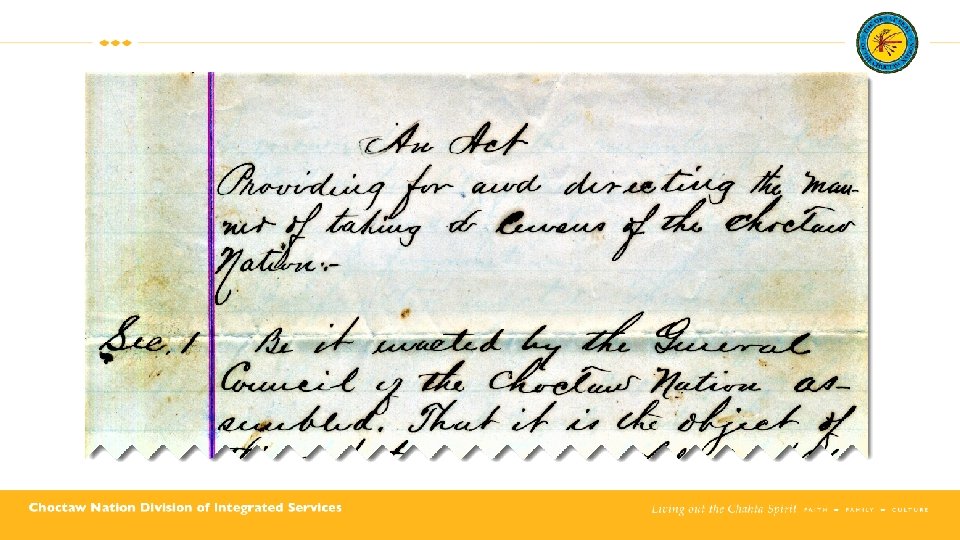 An Act
Providing for and directing the man-
ner of taking a Census of the Choctaw
Nation:-
Sec. 1 Be it enacted by the General
Council of the Choctaw Nation as-
sembled. That it is the object of
Choctaw Nation Division of Integrated Services
Living out the Chahta Spirit FAITH FAMILY CULTURE